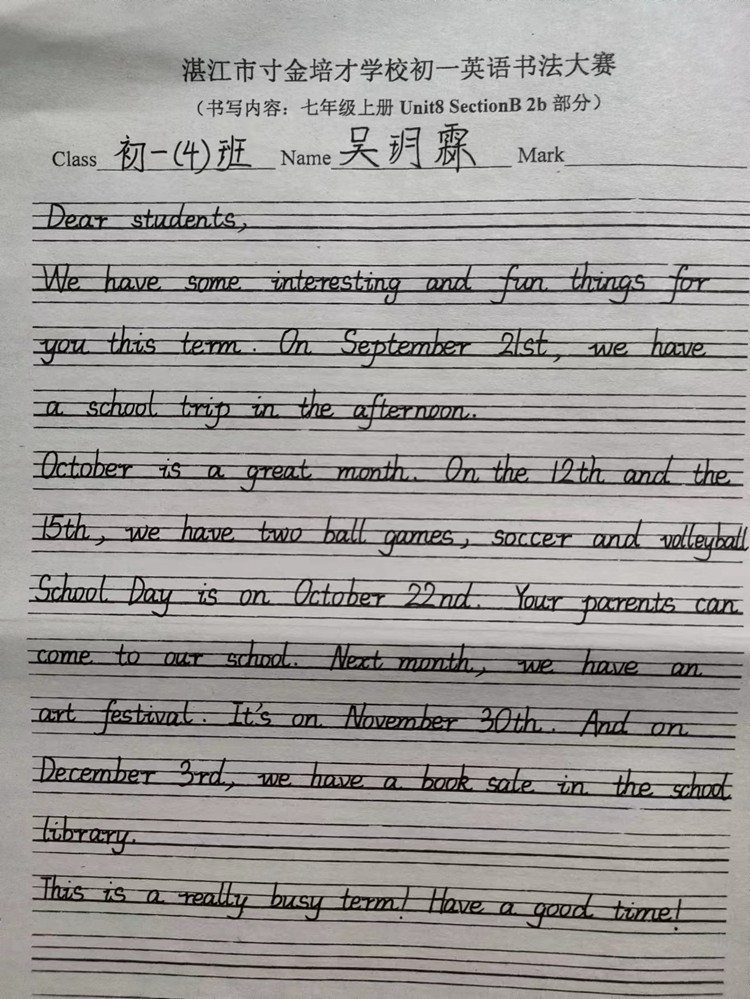 湛江市寸金培才学校初一英语书法大赛
（书写内容：七年级上册 Unit8 SectionB 2b 部分）
Class 初一(4)班 Name 吴玥霖 Mark
Dear students,
We have some interesting and fun things for
you this term. On September 21st, we have
a school trip in the afternoon.
October is a great month. On the 12th and the
15th, we have two ball games, soccer and volleyball
School Day is on October 22nd. Your parents can
come to our school. Next month, we have an
art festival. It's on November 30th. And on
December 3rd, we have a book sale in the school
library.
This is a really busy term! Have a good time!